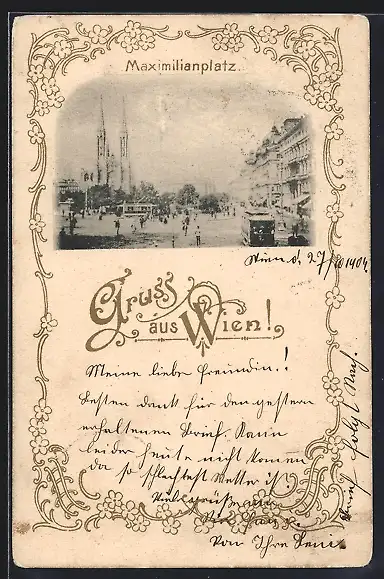 Maximilianplatz.
Wien d. 27/10 1904
Gruss
aus Wien!
Meine liebe Freundin!
Besten dank für den gestern
erhaltenen Brief. Kann
leider heute nicht komen
da so schlechtest Wetter ist
Viele grüße
Von Ihre
Brief folgt Nach.